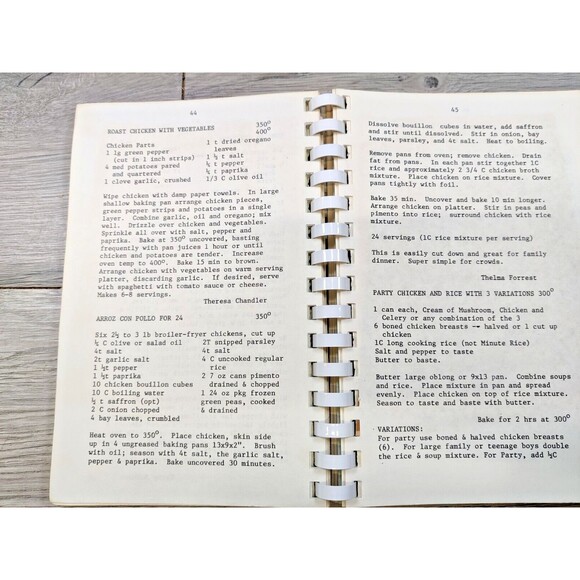 44
ROAST CHICKEN WITH VEGETABLES 350°
400°
Chicken Parts 1 t dried oregano
1 lg green pepper leaves
(cut in 1 inch strips) 1 ½ t salt
4 med potatoes pared ¼ t pepper
and quartered ½ t paprika
1 clove garlic, crushed 1/3 C olive oil
Wipe chicken with damp paper towels. In large
shallow baking pan arrange chicken pieces,
green pepper strips and potatoes in a single
layer. Combine garlic, oil and oregano; mix
well. Drizzle over chicken and vegetables.
Sprinkle all over with salt, pepper and
paprika. Bake at 350° uncovered, basting
frequently with pan juices 1 hour or until
chicken and potatoes are tender. Increase
oven temp to 400°. Bake 15 min to brown.
Arrange chicken with vegetables on warm serving
platter, discarding garlic. If desired, serve
with spaghetti with tomato sauce or cheese.
Makes 6-8 servings.
Theresa Chandler
ARROZ CON POLLO FOR 24 350°
Six 2½ to 3 lb broiler-fryer chickens, cut up
½ C olive or salad oil 2T snipped parsley
4t salt 4t salt
2t garlic salt 4 C uncooked regular
1 ½t pepper rice
1 ½t paprika 2 7 oz cans pimento
10 chicken bouillon cubes drained & chopped
10 C boiling water 1 24 oz pkg frozen
½ t saffron (opt) green peas, cooked
2 C onion chopped & drained
4 bay leaves, crumbled
Heat oven to 350°. Place chicken, skin side
up in 4 ungreased baking pans 13x9x2". Brush
with oil; season with 4t salt, the garlic salt,
pepper & paprika. Bake uncovered 30 minutes.
45
Dissolve bouillon cubes in water, add saffron
and stir until dissolved. Stir in onion, bay
leaves, parsley, and 4t salt. Heat to boiling.
Remove pans from oven; remove chicken. Drain
fat from pans. In each pan stir together 1C
rice and approximately 2 3/4 C chicken broth
mixture. Place chicken on rice mixture. Cover
pans tightly with foil.
Bake 35 min. Uncover and bake 10 min longer.
Arrange chicken on platter. Stir in peas and
pimento into rice; surround chicken with rice
mixture.
24 servings (1C rice mixture per serving)
This is easily cut down and great for family
dinner. Super simple for crowds.
Thelma Forrest
PARTY CHICKEN AND RICE WITH 3 VARIATIONS 300°
1 can each, Cream of Mushroom, Chicken and
Celery or any combination of the 3
6 boned chicken breasts -- halved or 1 cut up
chicken
1C long cooking rice (not Minute Rice)
Salt and pepper to taste
Butter to baste.
Butter large oblong or 9x13 pan. Combine soups
and rice. Place mixture in pan and spread
evenly. Place chicken on top of rice mixture.
Season to taste and baste with butter.
Bake for 2 hrs at 300°
VARIATIONS:
For party use boned & halved chicken breasts
(6). For large family or teenage boys double
the rice & soup mixture. For Party, add ½C